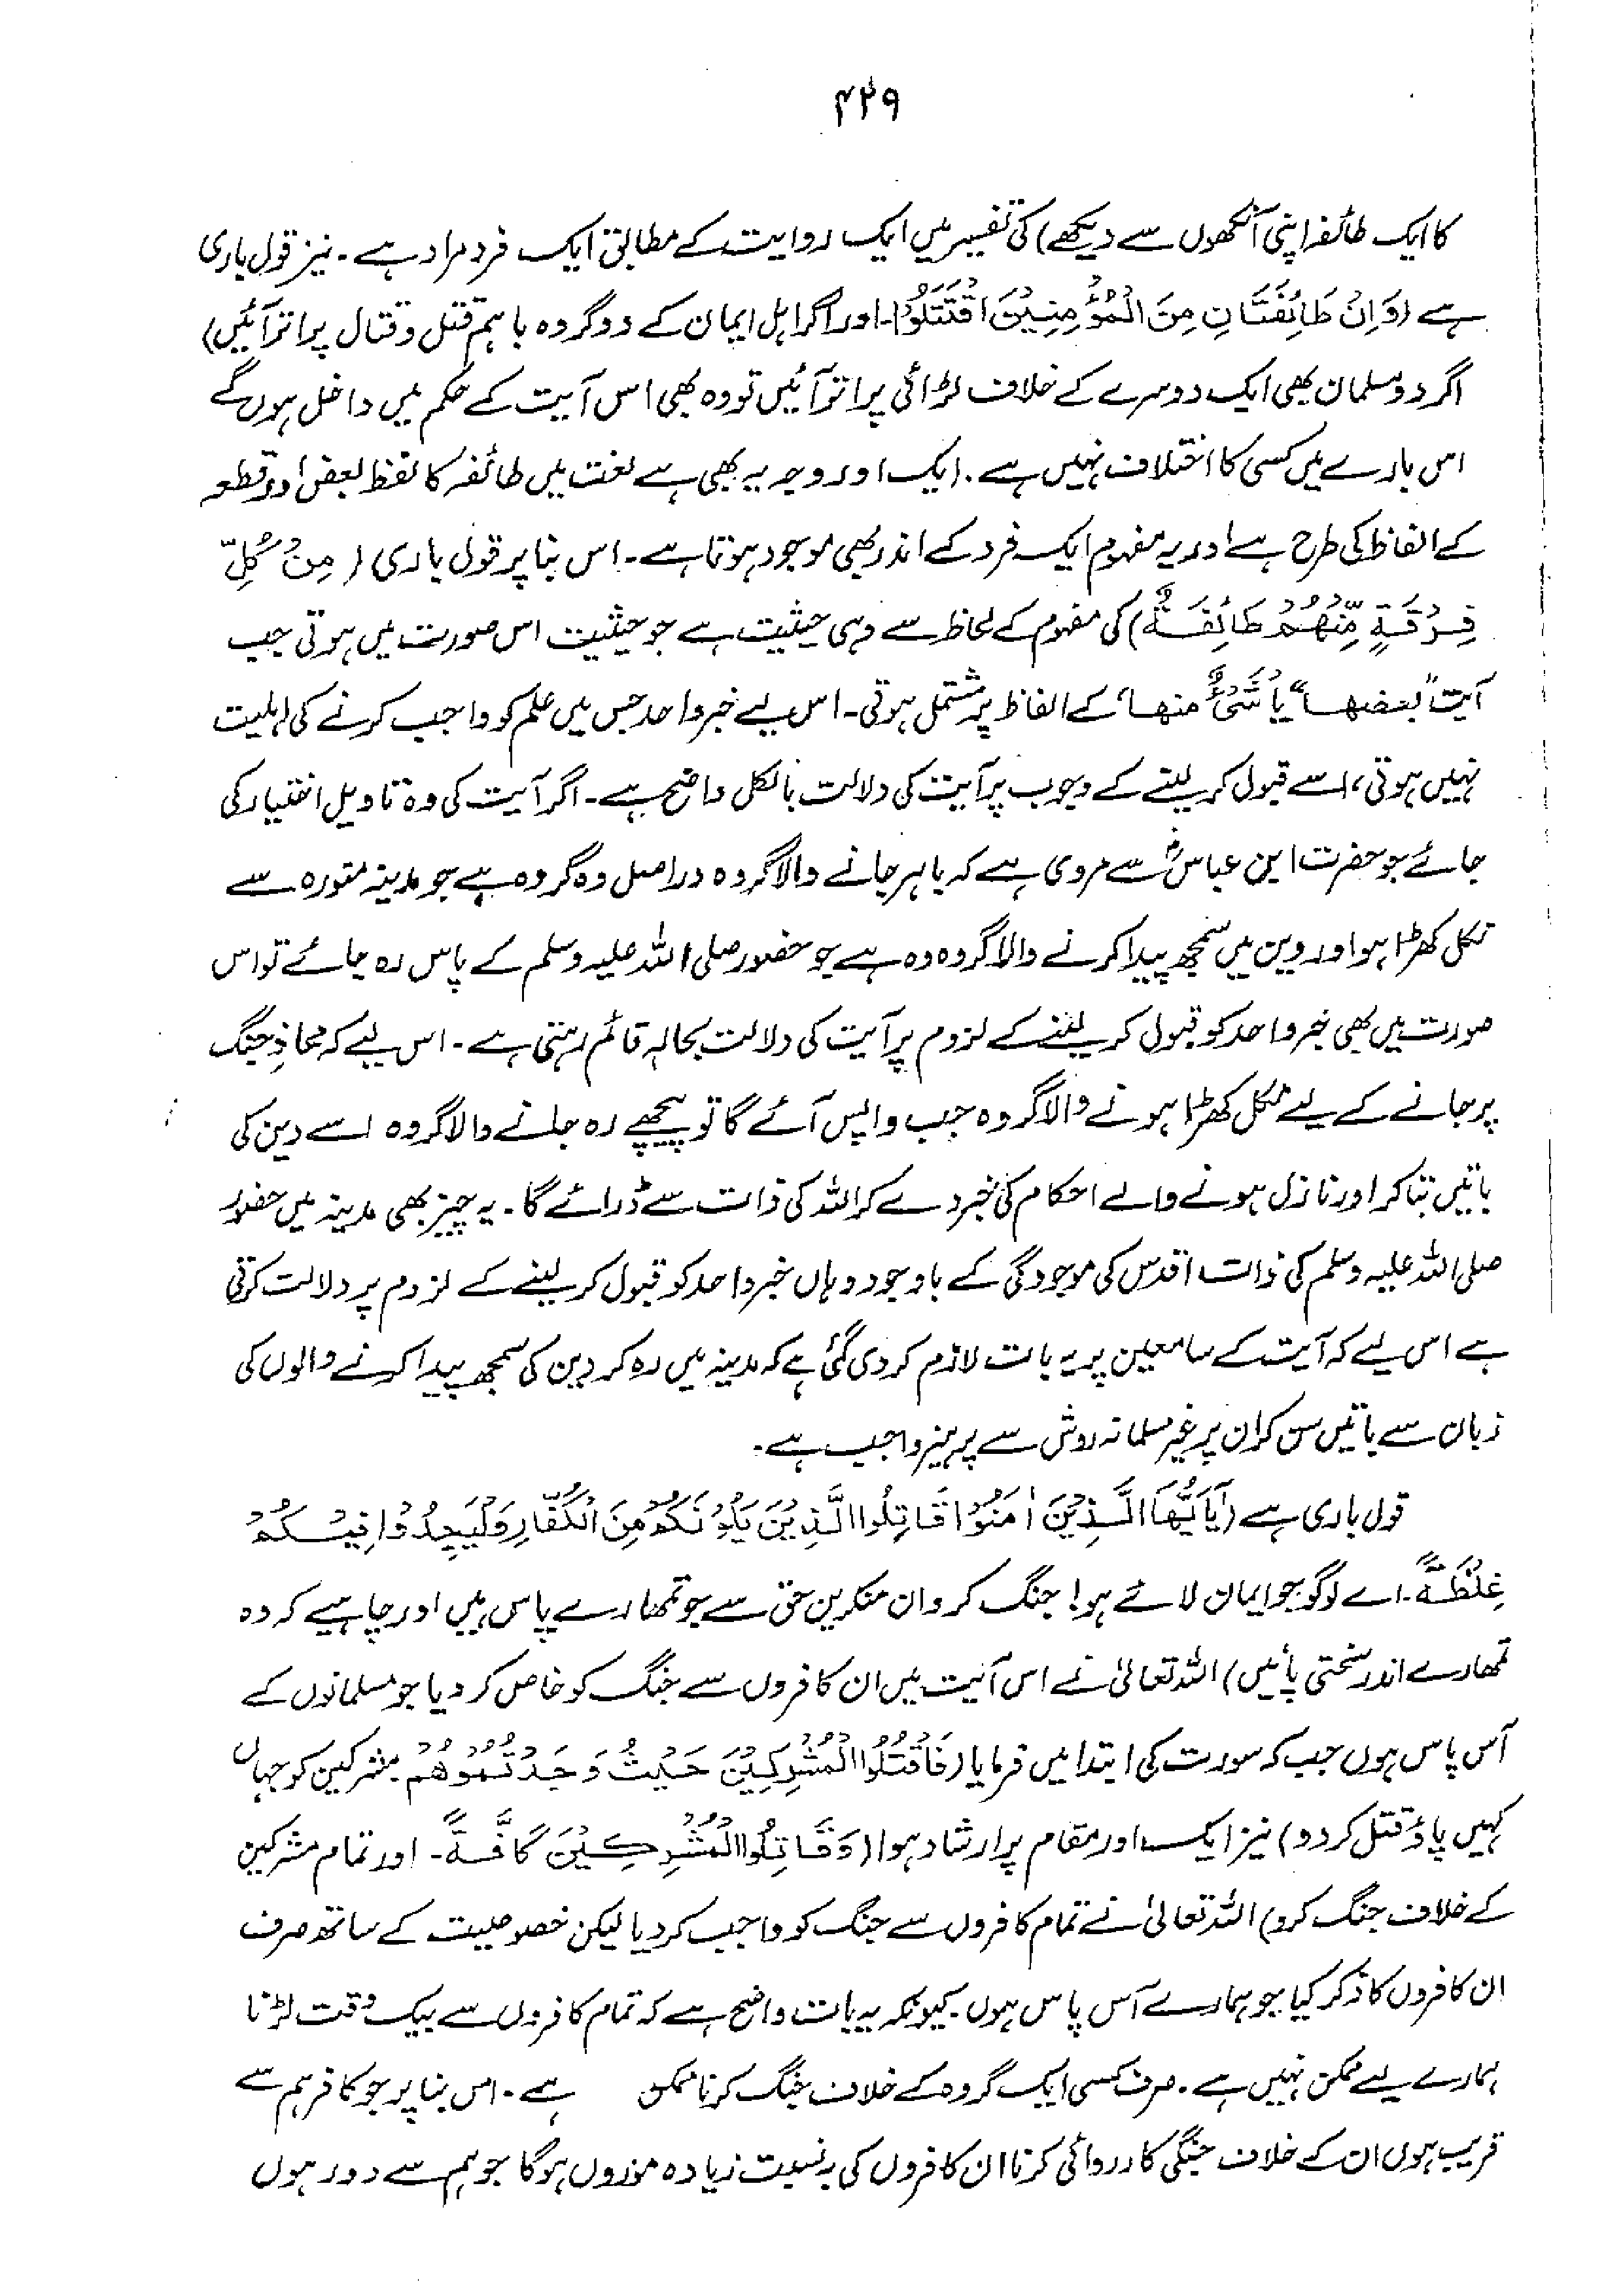 ۴۲۹
کا ایک طائفہ اپنی آنکھوں سے دیکھے) کی تفسیر میں ایک روایت کے مطابق ایک فرد مراد ہے۔ نیز قول باری
ہے (وَاِنْ طَائِفَتَانِ مِنَ الْمُؤْمِنِيْنَ اقْتَتَلُوْا۔ اور اگر اہل ایمان کے دو گروہ باہم قتل و قتال پر اتر آئیں)
اگر دو مسلمان بھی ایک دوسرے کے خلاف لڑائی پر اتر آئیں تو وہ بھی اس آیت کے حکم میں داخل ہوں گے
اس بارے میں کسی کا اختلاف نہیں ہے۔ ایک اور وجہ یہ بھی ہے لغت میں طائفہ کا لفظ بعض اور قطعہ
کے الفاظ کی طرح ہے اور یہ مفہوم ایک فرد کے اندر بھی موجود ہوتا ہے۔ اس بنا پر قول باری (مِنْ كُلِّ
فِرْقَةٍ مِّنْهُمْ طَائِفَةٌ) کی مفہوم کے لحاظ سے وہی حیثیت ہے جو حیثیت اس صورت میں ہوتی جب
آیت "بعضها" یا "شَیْءٌ منها" کے الفاظ پر مشتمل ہوتی۔ اس لیے خبر واحد جس میں علم کو واجب کرنے کی اہلیت
نہیں ہوتی، اسے قبول کر لینے کے وجوب پر آیت کی دلالت بالکل واضح ہے۔ اگر آیت کی وہ تاویل اختیار کی
جائے جو حضرت ابن عباسؓ سے مروی ہے کہ باہر جانے والا گروہ دراصل وہ گروہ ہے جو مدینہ منورہ سے
نکل کھڑا ہو اور دین میں سمجھ پیدا کرنے والا گروہ وہ ہے جو حضور صلی اللہ علیہ وسلم کے پاس رہ جائے تو اس
صورت میں بھی خبر واحد کو قبول کر لینے کے لزوم پر آیت کی دلالت بحالہ قائم رہتی ہے۔ اس لیے کہ محاذِ جنگ
پر جانے کے لیے نکل کھڑا ہونے والا گروہ جب واپس آئے گا تو پیچھے رہ جانے والا گروہ اسے دین کی
باتیں بتا کر اور نازل ہونے والے احکام کی خبر دے کر اللہ کی ذات سے ڈرائے گا۔ یہ چیز بھی مدینہ میں حضور
صلی اللہ علیہ وسلم کی ذات اقدس کی موجودگی کے باوجود وہاں خبر واحد کو قبول کر لینے کے لزوم پر دلالت کرتی
ہے اس لیے کہ آیت کے سامعین پر یہ بات لازم کر دی گئی ہے کہ مدینہ میں رہ کر دین کی سمجھ پیدا کرنے والوں کی
زبان سے باتیں سن کر ان پر غیر مسلمانہ روش سے پرہیز واجب ہے۔
قول باری ہے (يَآ اَيُّهَا الَّذِيْنَ اٰمَنُوْا قَاتِلُوا الَّذِيْنَ يَلُوْنَكُمْ مِنَ الْكُفَّارِ وَلْيَجِدُوْا فِيْكُمْ
غِلْظَةً۔ اے لوگو جو ایمان لائے ہو! جنگ کرو ان منکرین حق سے جو تمھارے پاس ہیں اور چاہیے کہ وہ
تمھارے اندر سختی پائیں) اللہ تعالیٰ نے اس آیت میں ان کافروں سے جنگ کو خاص کر دیا جو مسلمانوں کے
آس پاس ہوں جب کہ سورت کی ابتدا میں فرمایا (فَاقْتُلُوا الْمُشْرِكِيْنَ حَيْثُ وَجَدْتُّمُوْهُمْ مشرکین کو جہاں
کہیں پاؤ قتل کر دو) نیز ایک اور مقام پر ارشاد ہوا (وَقَاتِلُوا الْمُشْرِكِيْنَ كَافَّةً۔ اور تمام مشرکین
کے خلاف جنگ کرو) اللہ تعالیٰ نے تمام کافروں سے جنگ کو واجب کر دیا لیکن خصوصیت کے ساتھ صرف
ان کافروں کا ذکر کیا جو ہمارے آس پاس ہوں۔ کیونکہ یہ بات واضح ہے کہ تمام کافروں سے بیک وقت لڑنا
ہمارے لیے ممکن نہیں ہے۔ صرف کسی ایک گروہ کے خلاف جنگ کرنا ممکن ہے۔ اس بنا پر جو کافر ہم سے
قریب ہوں ان کے خلاف جنگی کارروائی کرنا ان کافروں کی بہ نسبت زیادہ موزوں ہوگا جو ہم سے دور ہوں